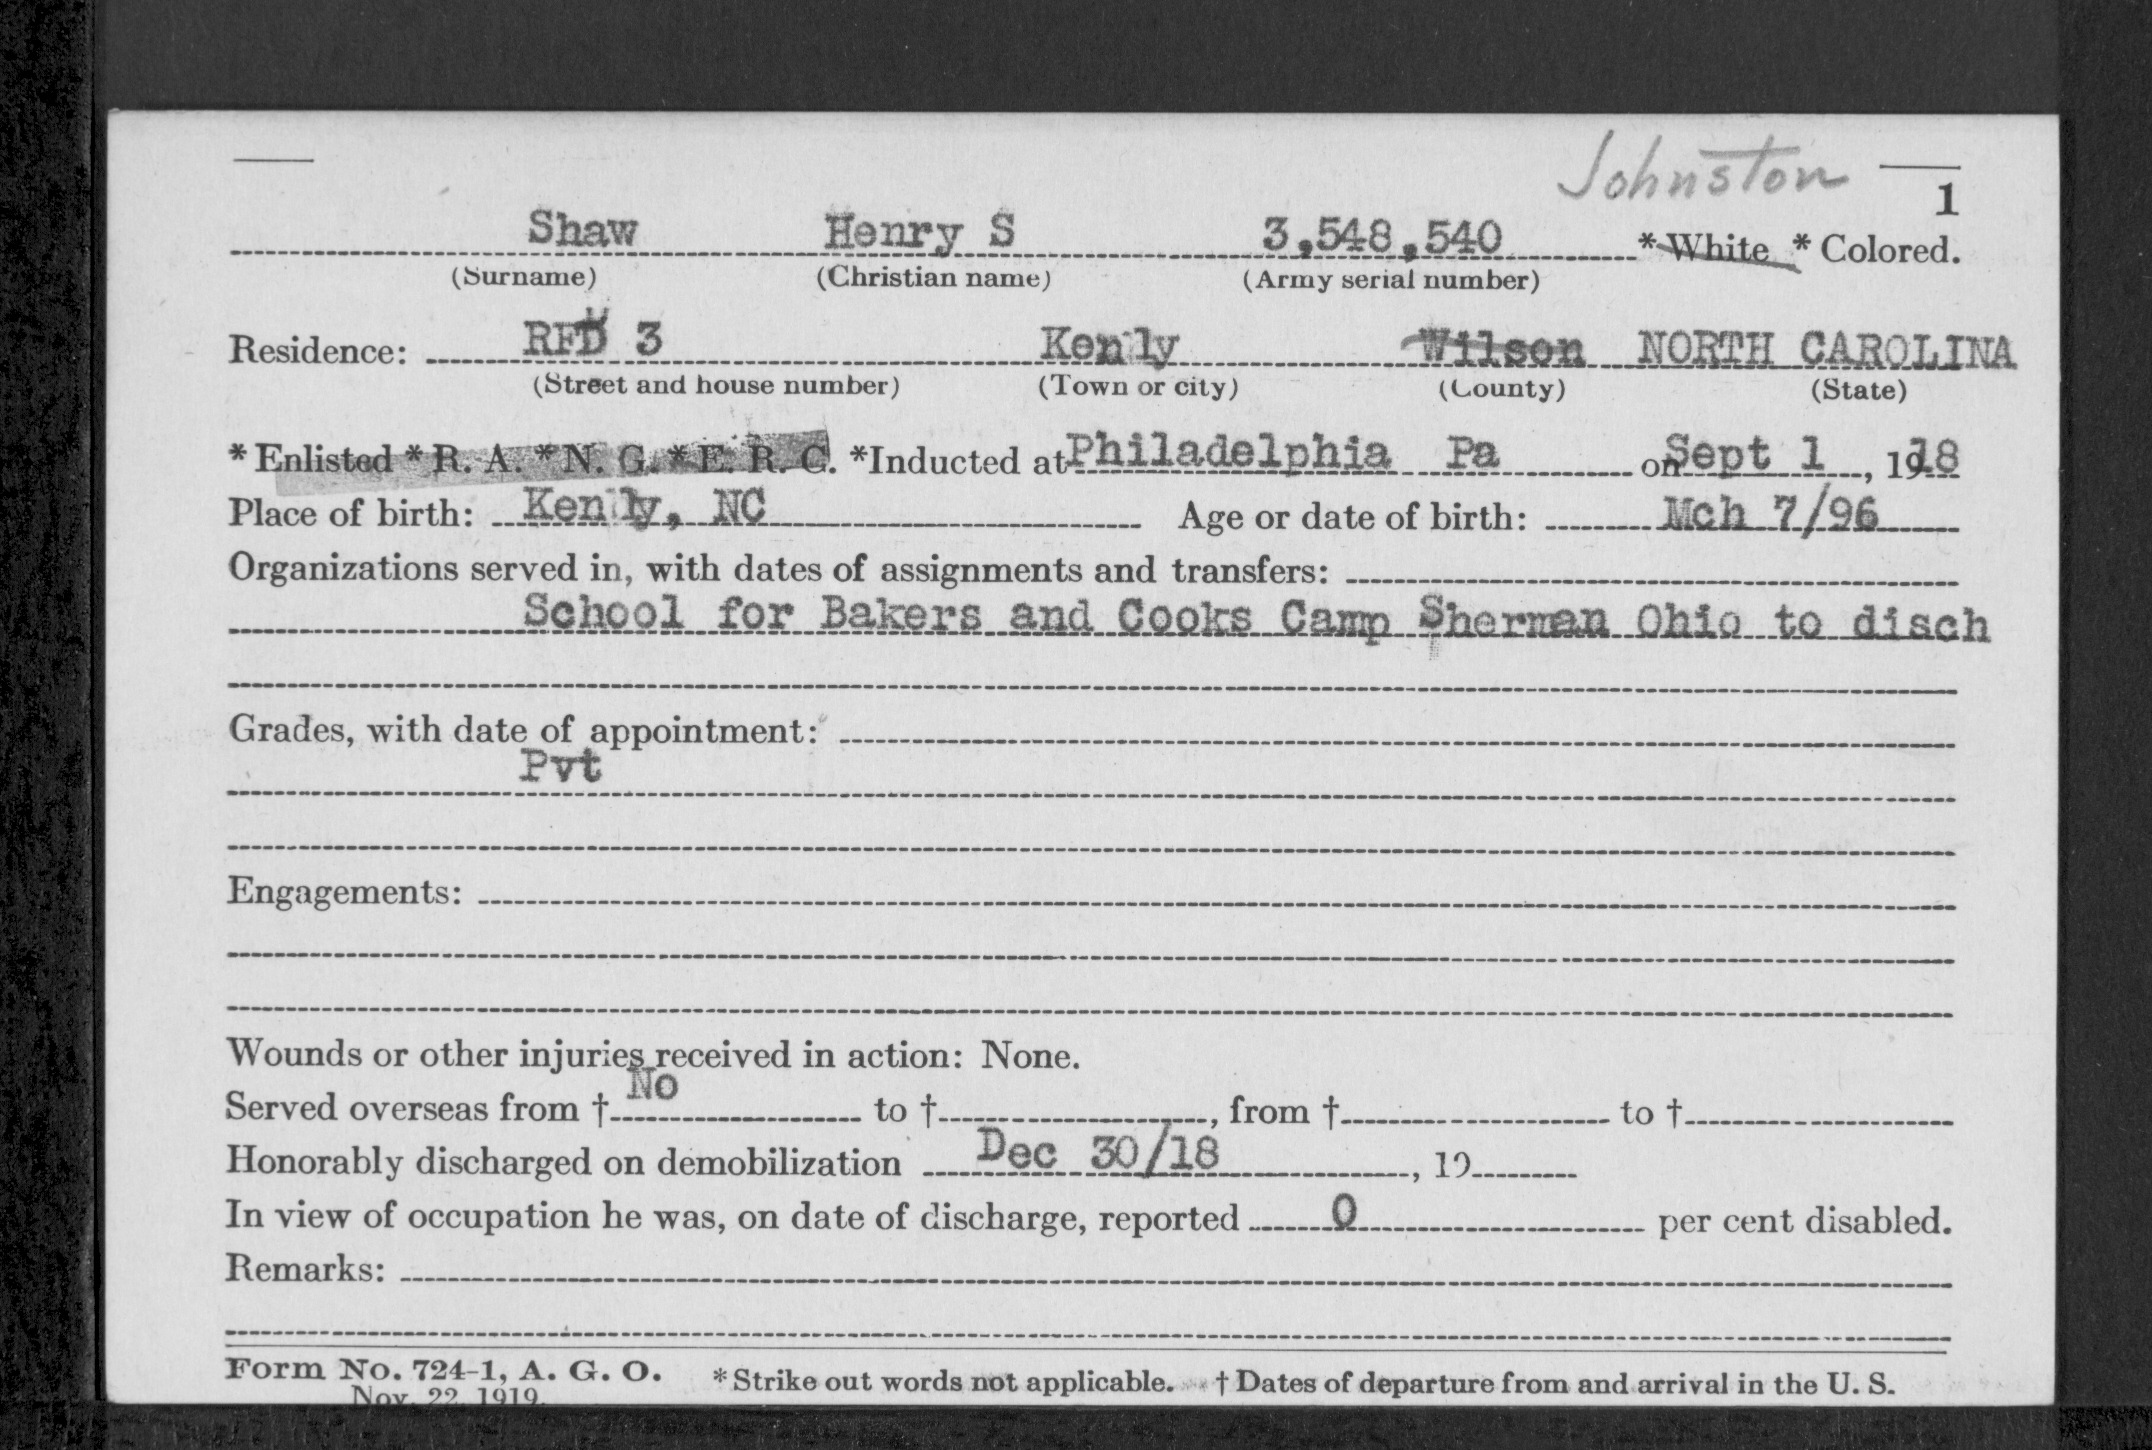 Johnston
1
Shaw Henry S 3,548,540 * White * Colored.
(Surname) (Christian name) (Army serial number)
Residence: RFD 3 Kenly Wilson NORTH CAROLINA
(Street and house number) (Town or city) (County) (State)
* Enlisted * R. A. * N. G. * E. R. C. *Inducted at Philadelphia Pa on Sept 1, 1918
Place of birth: Kenly, NC Age or date of birth: Mch 7/96
Organizations served in, with dates of assignments and transfers:
School for Bakers and Cooks Camp Sherman Ohio to disch
Grades, with date of appointment:
Pvt
Engagements:
Wounds or other injuries received in action: None.
Served overseas from † No to †, from † to †
Honorably discharged on demobilization Dec 30/18, 19
In view of occupation he was, on date of discharge, reported 0 per cent disabled.
Remarks:
Form No. 724-1, A. G. O. * Strike out words not applicable. † Dates of departure from and arrival in the U. S.
Nov. 22, 1919.